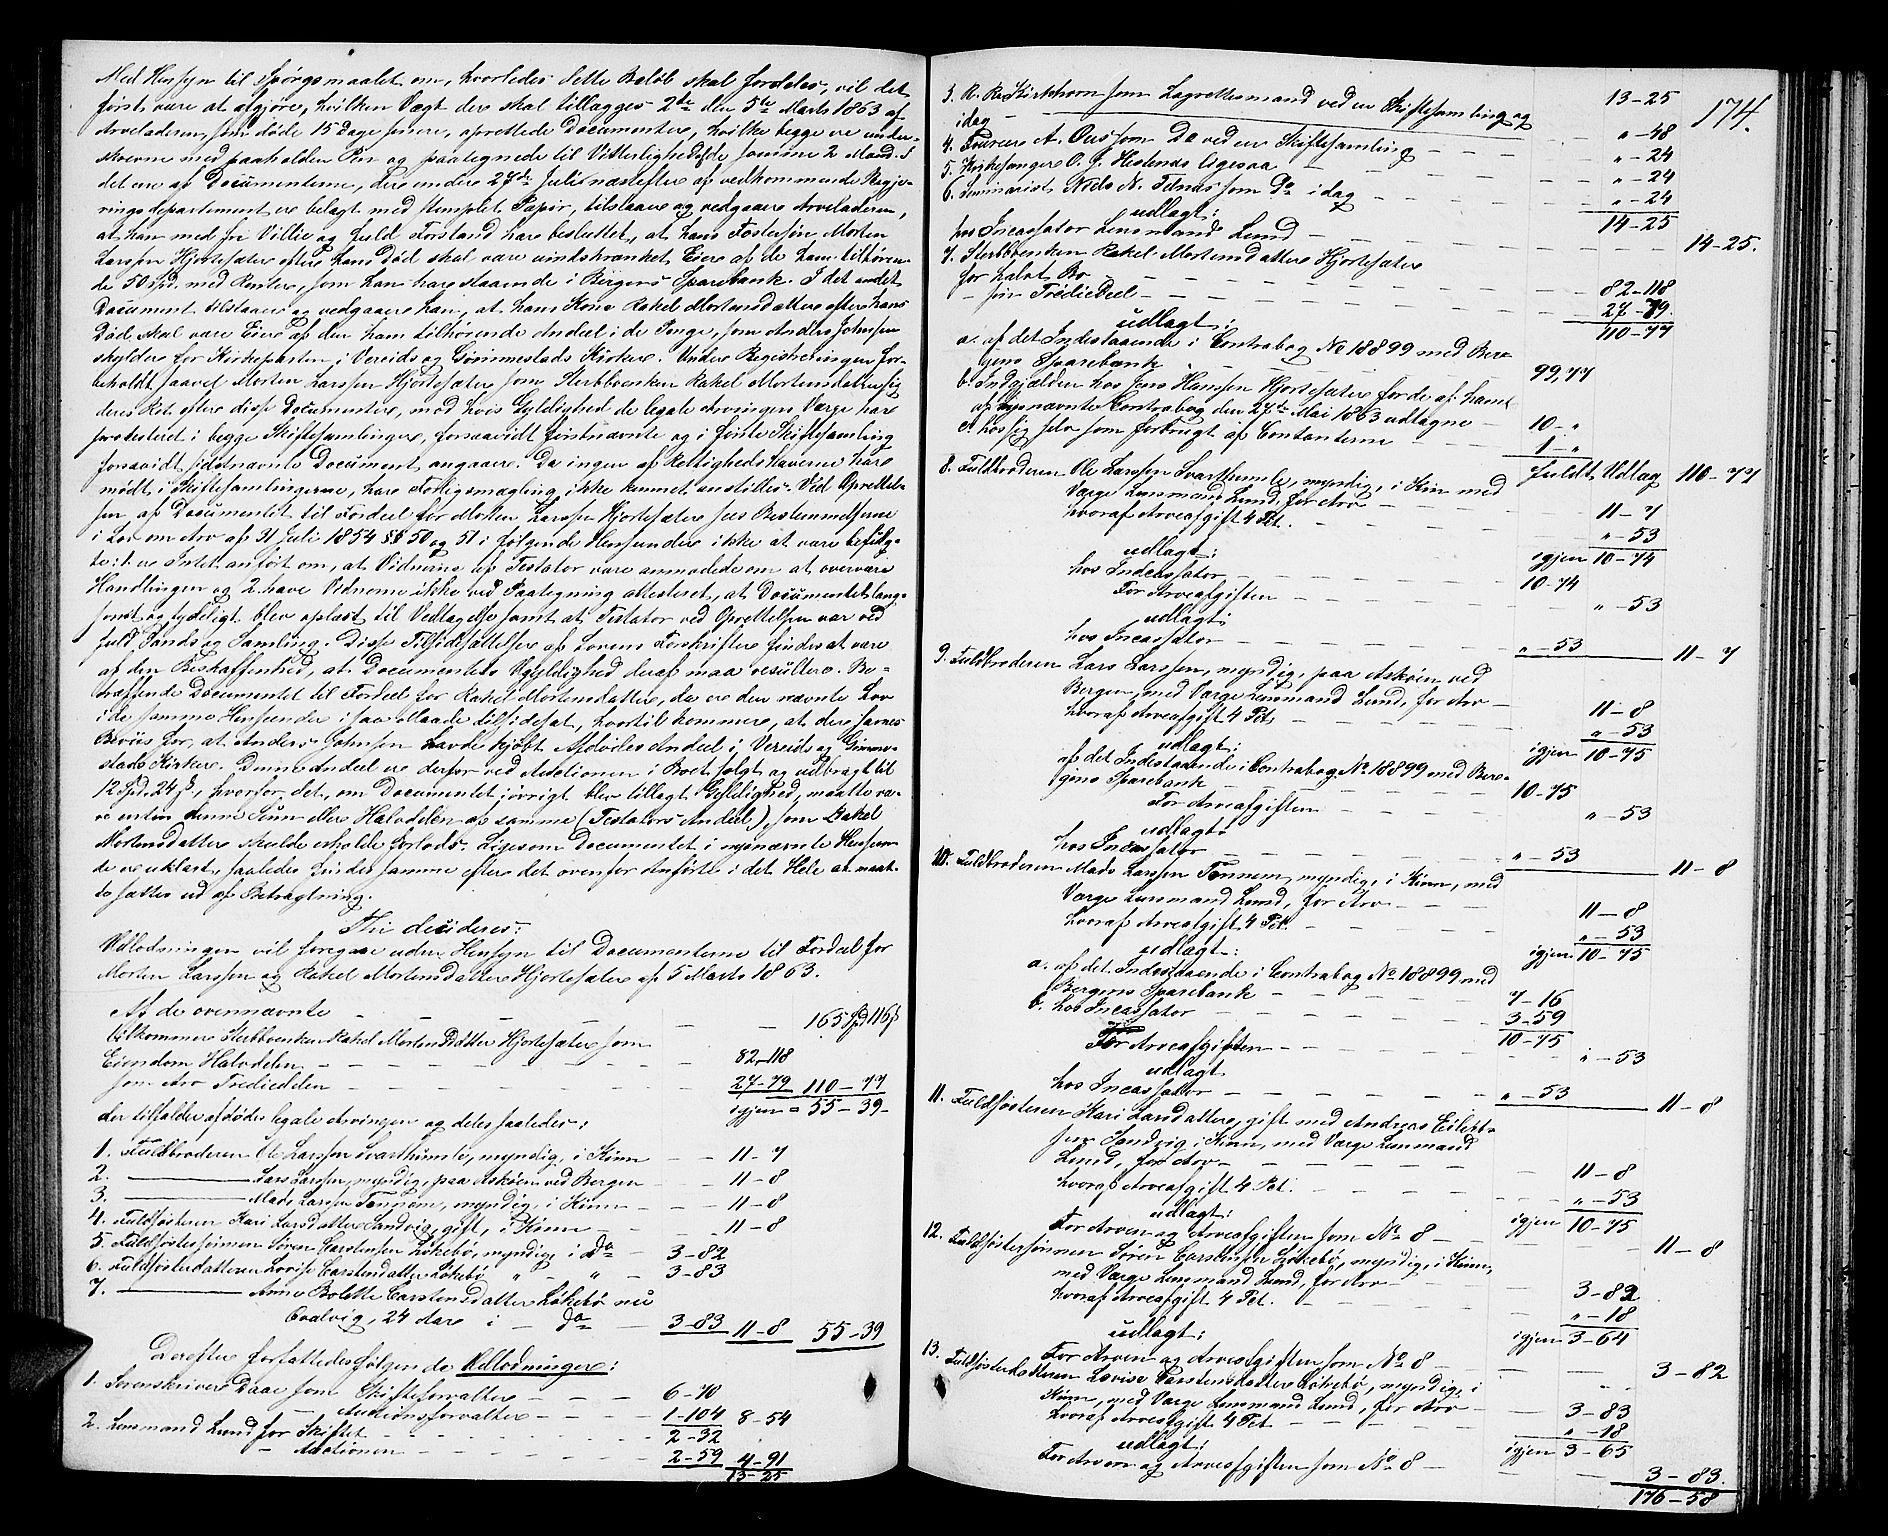 Med Hensyn til Spørgsmaalet om, hvorledes dette Beløb skal fordeles, vil det
først være at afgjøre, hvilken Vægt der skal tillægges 2de den 5te Marts 1863 af
Arveladeren, som døde 15 Dage senere, oprettede Documenter, hvilke begge ere under-
skrevne med paaholden Pen og paategnede til Vitterlighed af de samme 2 Mænd. I
det ene af Documenterne, der under 27de Juli næstefter af vedkommende Regje-
ringsdepartement er belagt med stemplet Papir, tilstaaer og vedgaaer Arveladeren,
at han med fri Villie og fuld Forstand har besluttet, at hans Fostersøn Morten
Larssen Hjortesæter efter hans Død skal være uindskrænket Eier af de ham tilhøren-
de 50 Spd. med Renter, som han har staaende i Bergens Sparebank. I det andet
Document tilstaaer og vedgaaer han, at hans Kone Rakel Mortensdatter efter hans
Død skal være Eier af den ham tilhørende Andeel i de Penge, som Anders Johnsen
skylder for Kirkeparten i Vereids og Gimmestads Kirker. Under Registreringen for-
beholdt saavel Morten Larssen Hjortesæter som Sterbboenken Rakel Mortensdatter sig
deres Ret efter disse Documenter, mod hvis Gyldighed de legale Arvingers Værge har
protesteret i begge Skiftesamlinger, forsaavidt førstnævnte og i første Skiftesamling
forsaavidt sidstnævnte Document angaaer. Da ingen af Rettighedshaverne have
mødt i Skiftesamlingerne, har Forligsmægling ikke kunnet anstilles. Ved Oprettel-
sen af Documentet til Fordeel for Morten Larssen Hjortesæter sees Bestemmelserne
i Lov om Arv af 31 Juli 1854 §§ 50 og 51 i følgende Henseender ikke at være befulg-
te: 1. er Intet anført om, at Vidnerne af Testator vare anmodede om at overvære
Handlingen og 2. have Vidnerne ikke ved Paategning attesteret, at Documentet lang-
somt og tydeligt blev oplæst til Vedtagelse samt at Testator ved Oprettelsen var ved
fuld Sands og Samling. Disse Tilsidesættelser af Lovens Forskrifter findes at være
af den Beskaffenhed, at Documentets Ugyldighed deraf maa resultere. Be-
træffende Documentet til Fordeel for Rakel Mortensdatter, da er den nævnte Lov
i de samme Henseender i saa Maade tilsidesat, hvortil kommer, at der savnes
Beviis for, at Anders Johnsen havde kjøbt Afdødes Andeel i Vereids og Gimme-
stads Kirker. Denne Andeel er derfor ved Auctionen i Boet solgt og udbragt til
12 Spd. 24 s, hvorfor det, om Documentet iøvrigt blev tillagt Gyldighed, maatte væ-
re enten denne Sum eller Halvdelen af samme (Testators Andeel), som Rakel
Mortensdatter skulde erholde forlods. Ligesom Documentet i nysnævnte Henseen-
de er uklart, saaledes findes samme efter det ovenfor Anførte i det Hele at maat-
te sættes ud af Betragtning.
Thi decideres:
Udlodningen vil foregaae uden Hensyn til Documenterne til Fordeel for
Morten Larssen og Rakel Mortensdatter Hjortesæter af 5 Marts 1863.
Af de ovennævnte - - - 165 Spd 116 s
tilkommer Sterbboenken Rakel Mortensdatter Hjortesæter som
Eiendom Halvdelen - - - 82-118
som Arv Trediedelen - - - 27-79 110-77
igjen = 55-39
der tilfalder afdødes legale Arvinger og deles saaledes:
1. Fuldbroderen Ole Larssen Svarthumle, myndig, i Kinn - - 11-7
2. ——— Lars Larssen, myndig, paa Askøen ved Bergen - - 11-8
3. ——— Mads Larssen Tonnem, myndig, i Kinn - - 11-8
4. Fuldsøsteren Kari Larsdatter Sandvig, gift, i Kinn - - 11-8
5. Fuldsøstersønnen Søren Carstensen Løkebø, myndig i Do - 3-82
6. Fuldsøsterdatteren Lovise Carstensdatter Løkebø " - " - 3-83
7. ——— Anne Bolette Carstensdatter Løkebø nu
Qvalvig, 24 Aar i - do 3-83 11-8 55-39
Derefter forfattedes følgende Udlodninger:
1. Sorenskriver Daae som Skifteforvalter - - - 6-70
— Auctionsforvalter - - - 1-104 8-54
2. Lensmand Lund for Skiftet - - - 2-32
" Auctionen - - - 2-59 4-91
13-25
174.
13-25
3. R. R. Kirkhorn som Lagrettesmand ved en Skiftesamling og
idag - - - " - 48
4. A. Aus som Do ved en Skiftesamling - - - " - 24
5. Kirkesanger O. J. Hestenæs Ugesaa - - - " - 24
6. Seminarist Niels N. Tenas som Do idag - - - " - 24
14-25
udlagt:
hos Incassator Lensmand Lund - - - 14-25.
7. Sterbboenken Rakel Mortensdatter Hjortesæter
for halvt Bo - - - 82-118
- sin Trediedeel - - - 27-79.
110-77
udlagt:
a. af det Indestaaende i Contrabog No 18899 med Ber-
gens Sparebank - - - 99,77
b. Indgjælden hos Jens Hanssen Hjortesæter for de af ham
af nysnævnte Contrabog den 27de Mai 1863 udtagne - 10 - "
c. hos sig selv som forbrugt af Contanterne - - 1 - "
fuldt Udlag 110-77
8. Fuldbroderen Ole Larssen Svarthumle, myndig, i Kinn med
Værge Lensmand Lund, for Arv - - - 11-7
hvoraf Arveafgift 4 Pct. - - - " - 53
igjen 10-74
udlagt:
hos Incassator - - - 10-74
For Arveafgiften - - - " - 53
udlagt:
hos Incassator - - - " - 53 11-7
9. Fuldbroderen Lars Larssen, myndig, paa Askøen ved
Bergen, med Værge Lensmand Lund, for Arv - 11-8
hvoraf Arveafgift 4 Pct. - - - " - 53
igjen 10-75
udlagt:
af det Indestaaende i Contrabog No 18899 med Ber-
gens Sparebank - - - 10-75
For Arveafgiften - - - " - 53
udlagt:
hos Incassator - - - " - 53 11-8
10. Fuldbroderen Mads Larssen Tonnem, myndig, i Kinn, med
Værge Lensmand Lund, for Arv - - - 11-8
hvoraf Arveafgift 4 Pct. - - - " - 53
igjen 10-75
udlagt:
a. af det Indestaaende i Contrabog No 18899 med
Bergens Sparebank - - - 7-16
b. hos Incassator - - - 3-59
10-75
For Arveafgiften - - - " - 53
udlagt
hos Incassator - - - " - 53 11-8
11. Fuldsøsteren Kari Larsdatter, gift med Andreas Eilert-
sen Sandvig i Kinn, med Værge Lensmand
Lund, for Arv - - - 11-8
hvoraf Arveafgift 4 Pct. - - - " - 53
igjen 10-75
udlagt:
For Arven og Arveafgiften som No 8 - - - 11-8
12. Fuldsøstersønnen Søren Carstensen Løkebø, myndig, i Kinn,
med Værge Lensmand Lund, for Arv - - 3-82
hvoraf Arveafgift 4 Pct. - - - " - 18
igjen 3-64
udlagt:
For Arven og Arveafgiften som No 8 - - - 3-82
13. Fuldsøsterdatteren Lovise Carstensdatter Løkebø, myndig, i
Kinn, med Værge Lensmand Lund, for Arv - - 3-83
hvoraf Arveafgift 4 Pct. - - - " - 18
igjen 3-65
udlagt:
For Arven og Arveafgiften som No 8 - - - 3-83.
176-58